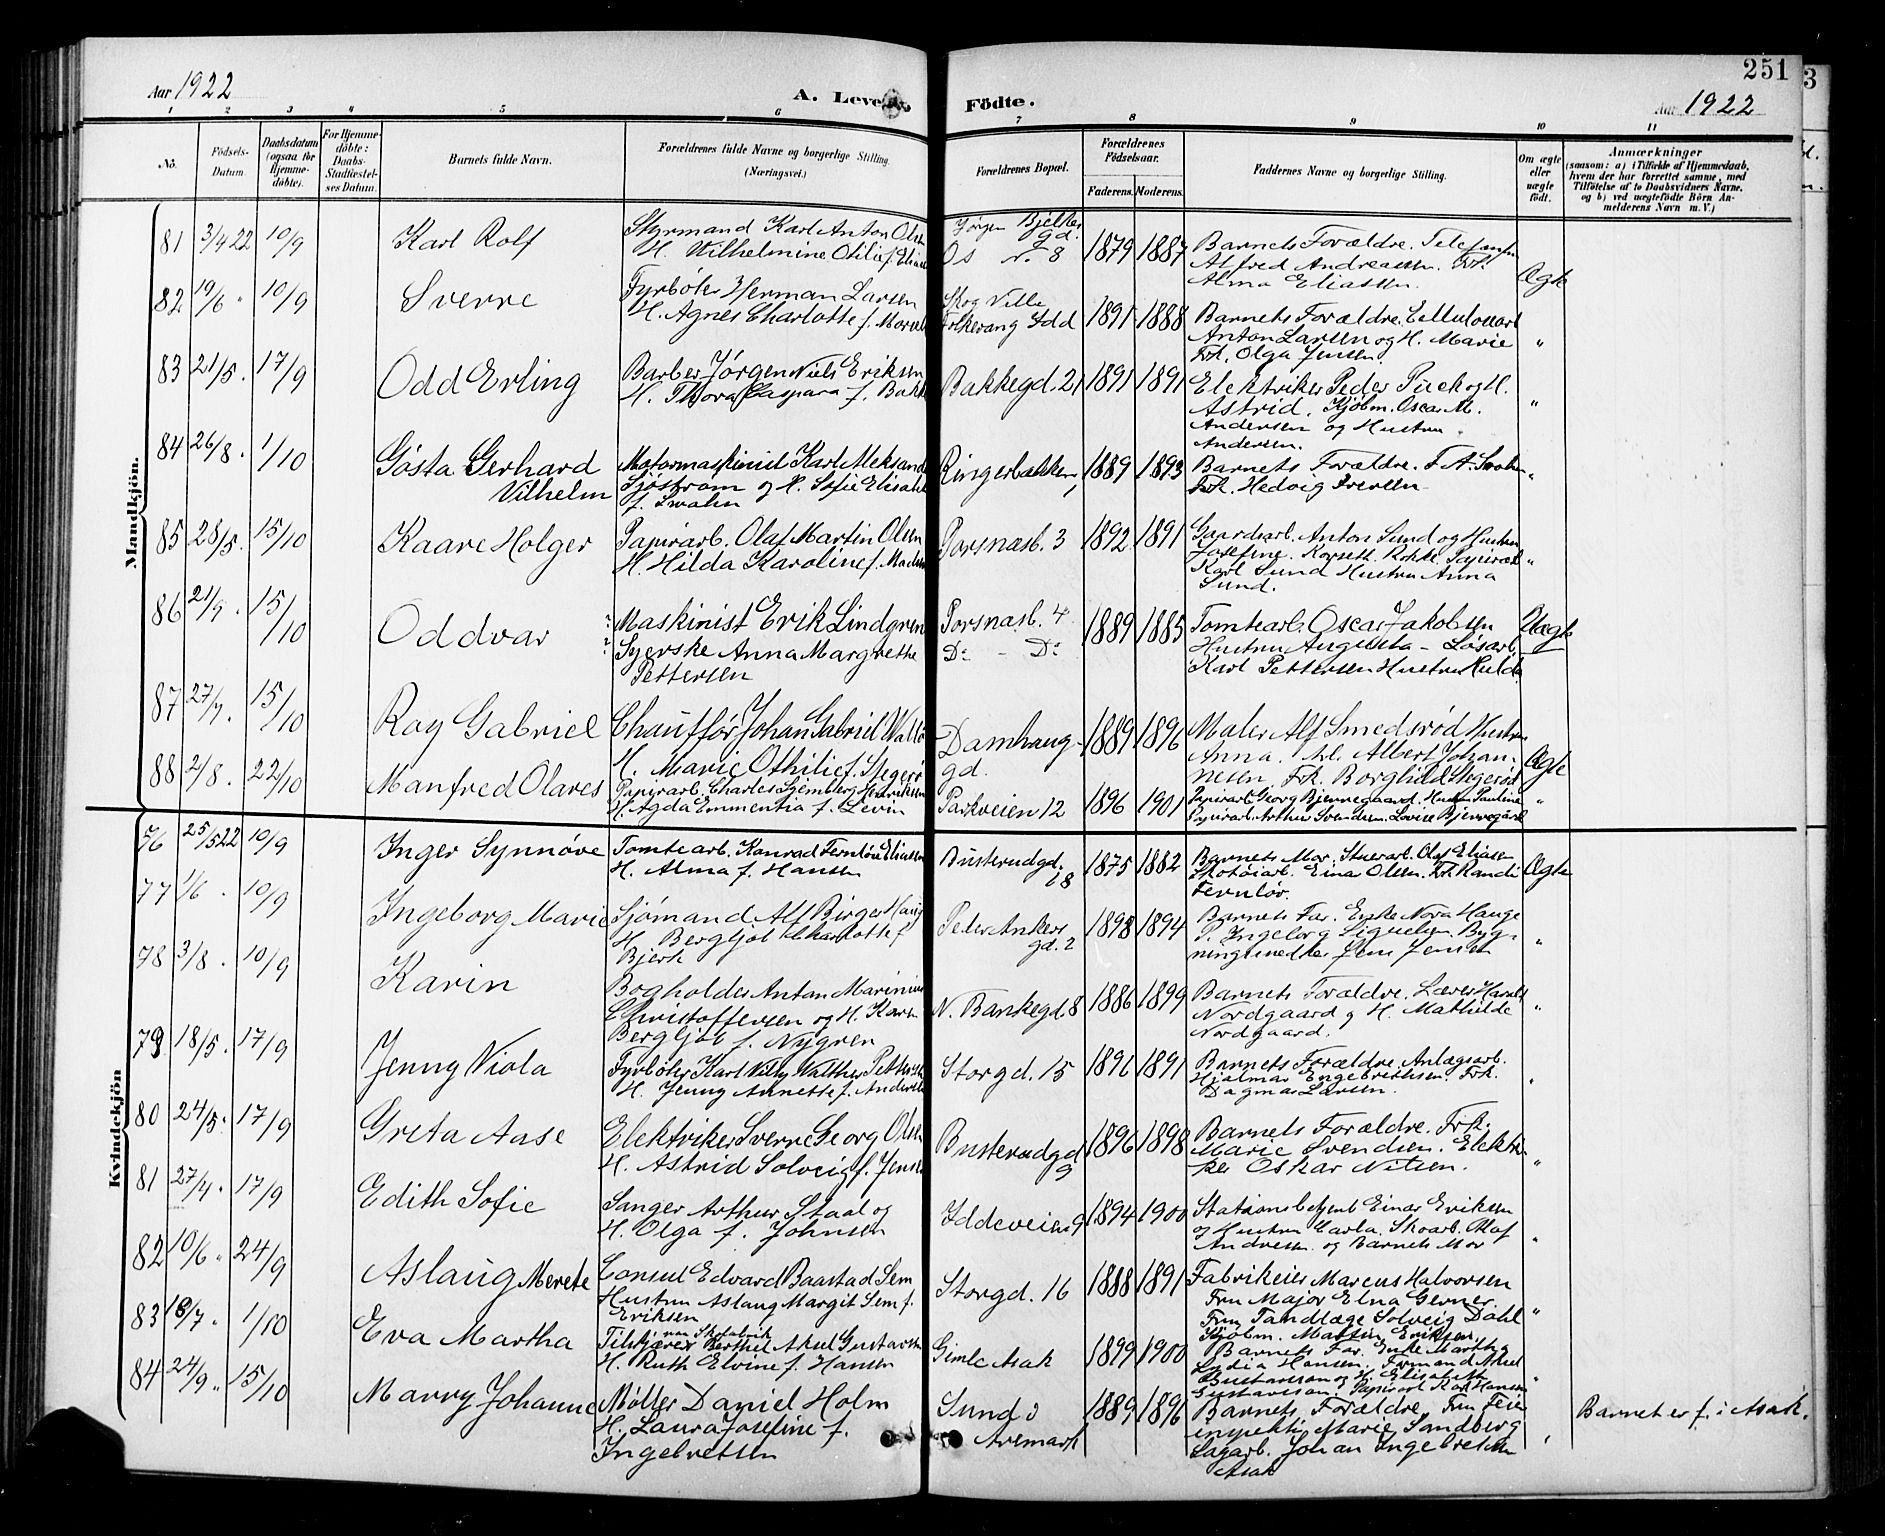 251
Aar 1922
A. Levende
Födte.
Aar 1922
1 2 3 4 5 6 7 8 9 10 11
No.
Födsels-Datum.
Daabsdatum (ogsaa for Hjemme-döbte).
For Hjemme-döbte: Daabs-Stadfæstel-ses Datum.
Barnets fulde Navn.
Forældrenes fulde Navne og borgerlige Stilling. (Næringsvei.)
Forældrenes Bopæl.
Forældrenes Födselsaar.
Faderens. Moderens.
Faddernes Navne og borgerlige Stilling.
Om ægte eller uægte födt.
Anmærkninger
(saasom: a) i Tilfælde af Hjemmedaab, hvem der har forrettet samme, med Tilföielse af to Daabsvidners Navne, og b) ved uægtefödte Börn An-melderens Navn m. V.)
Mandkjön.
81 3/4 22 10/9 Karl Rolf
Styrmand Karl Anton Olsen
H. Vilhelmine Otilie f. Elias
Jørgen Bjelkes gd.
Os nr. 8
1879 1887
Barnets Forældre. Telefonfm
Alfred Andreassen. Frk.
Alma Eliassen.
Ægte
82 19/6 " 10/9 Sverre
Fyrbøter Herman Larsen
H. Agnes Charlotte f.
Skog Ville
Idd
1891 1888
Barnets Forældre. Cellulosearb
Anton Larsen og H. Marie
Frk. Olga Jensen.
"
83 21/5. 17/9 Odd Erling
Barber Jørgen Niels Eriksen
H. Thora Caspara f. Bakke
Bakkegd. 21
1891 1891
Elektriker Peder og H.
Astrid. Kjøbm. Oscar M.
Andersen og Hustru
Andersen.
"
84 26/8. 1/10 Gösta Gerhard
Vilhelm
Motormaskinist Karl Aleksander
Sjöstrøm og H. Sofie Elisabet
f. Swahn
Ringerbakken 1
1889 1893
Barnets Forældre. F. A. Swahn
Frk. Hedvig Iversen
"
85 28/5. 15/10 Kaare Holger
Papirarb. Olaf Martin Olsen
H. Hilda Karoline f. Madsen
Porsnæsb. 3
1892 1891
Gaardsarb. Anton Sund og Hustru
Josefine. Papirarb
Karl Sund Hustru Anna
Sund.
"
86 21/9. 15/10 Oddvar
? Maskinist Erik Lindgren
? Syerske Anna Margrethe
Pettersen
Porsnæsb. 4
Do - Do
1889 1885
Tomtearb. Oscar Jakobsen
Hustru Augusta - Løsarb.
Karl Pettersen Hustru Hulda
Uægte
87 27/7. 15/10 Roy Gabriel
Chauffør Johan Gabriel
H. Marie Othilie f. Stegerø
Damhaug-
gd.
1889 1896
Maler Alf Smedsrød Hustru
Anna. Albert Johan-
nesen Frk. Borghild Stegerød
Ægte
88 2/8. 22/10 Manfred Olaves
Papirarb. Charles Henriksen
H. Agda Emmentia f. Levin
Parkveien 12
1896 1901
Papirarb. Georg Bjennegaard. Hustru Pauline
Papirarb. Arthur Svendsen. Lovise Bjennegård
"
Kvindekjön
76 25/5 22 10/9 Inger Synnöve
Tomtearb. Konrad Fernløv Eliassen
H. Alma f. Hansen
Busterudgd.
18
1875 1882
Barnets Mor. Stuerarb. Olaf Eliasen
Skotøiarb. Einar Olsen. Frk. Randi
Fernløv.
Ægte
77 1/6 . 10/9 Ingeborg Marie
Sjømand Alf Birger Haug
H. Bergljot Charlotte f
Bjerk
Peder Ankers
gd. 2
1898 1894
Barnets Far. Enke Nora Hauge
P. Ingeborg Byg-
ningssnedker Jens Jensen
"
78 3/8. 10/9 Karin
Bogholder Anton Marinius
Christoffersen og H. Karen
Bergljot f. Nygren
N. Bankegd. 8
1886 1899
Barnets Forældre. Lærer Harald
Nordgaard og H. Mathilde
Nordgaard.
"
79 18/5. 17/9 Jenny Viola
Fyrbøter Karl Villy Walther Pettersen
H. Jenny Annette f. Andersen
Storgd. 15
1896 1891
Barnets Forældre. Anlægsarb.
Hjalmar Engebrethsen. Frk.
Dagmar Larsen.
"
80 24/5. 17/9 Greta Aase
Elektriker Sverre Georg Olsen
H. Astrid Solveig f. Jensen
Busterudgd
9
1896 1898
Barnets Forældre. Frk.
Marie Svendsen. Elektri-
ker Oskar Nilsen.
"
81 27/4. 17/9 Edith Sofie
Sanger Arthur Staal og
H. Olga f. Johnsen
Iddeveien 9
1894 1900
Stationsbetjent Einar Eriksen
og Hustru Carla. Skoarb. Olaf
Andresen og Barnets Mor
"
82 10/6 " 24/9 Aslaug Merete
Consul Edvard Baastad Sem
Hustru Aslaug Margit Sem f.
Eriksen
Storgd. 16
1888 1891
Fabrikeier Marcus Halvorsen
Fru Major Elna Gerner.
Fru Tandlæge Solveig Dahl
Kjøbm. Martin Eriksen.
"
83 18/7. 1/10 Eva Martha
Tilskjærer ved Skofabrik Berthel Aksel Gustavsen
H. Ruth Elvine f. Hansen
Gimle Asak
1899 1900
Barnets Far. Enke Martha
Lydia Hansen. Formand Aksel
Gustavson og H. Elisabeth
Gustavsson. Papirarb. Karl Hansen
"
84 24/9 " 15/10 Marry Johanne
Møller Daniel Holm
H. Laura Josefine f.
Ingebretsen
Sund i
Aremark
1889 1896
Barnets Forældre. Fru Feier
inspektør Marie Sandberg
Sagarb. Johan Ingebretsen
Asak
"
Barnet er f. i Asak.